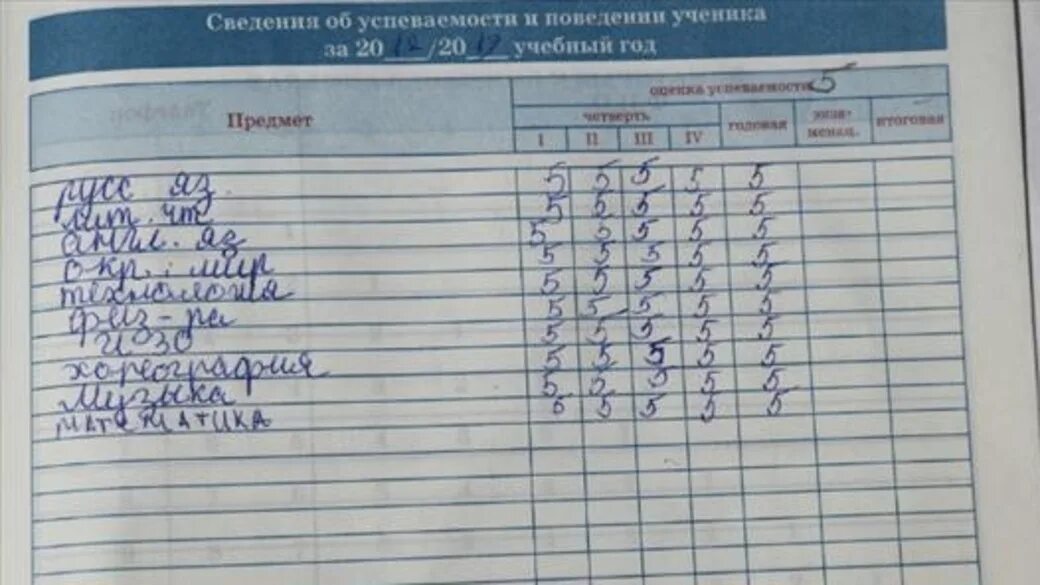 Сведения об успеваемости и поведении ученика
за 20 /20 учебный год
Предмет
оценка успеваемости 5
четверть
I II III IV годовая экза-менац. итоговая
русс яз. 5 5 5 5 5
лит. чт 5 5 5 5 5
англ. яз 5 5 5 5 5
окр. мир 5 5 5 5 5
технология 5 5 5 5 5
физ-ра 5 5 5 5 5
ИЗО 5 5 5 5 5
хореография 5 5 5 5 5
Музыка 5 5 5 5 5
МАТЕМАТИКА 5 5 5 5 5